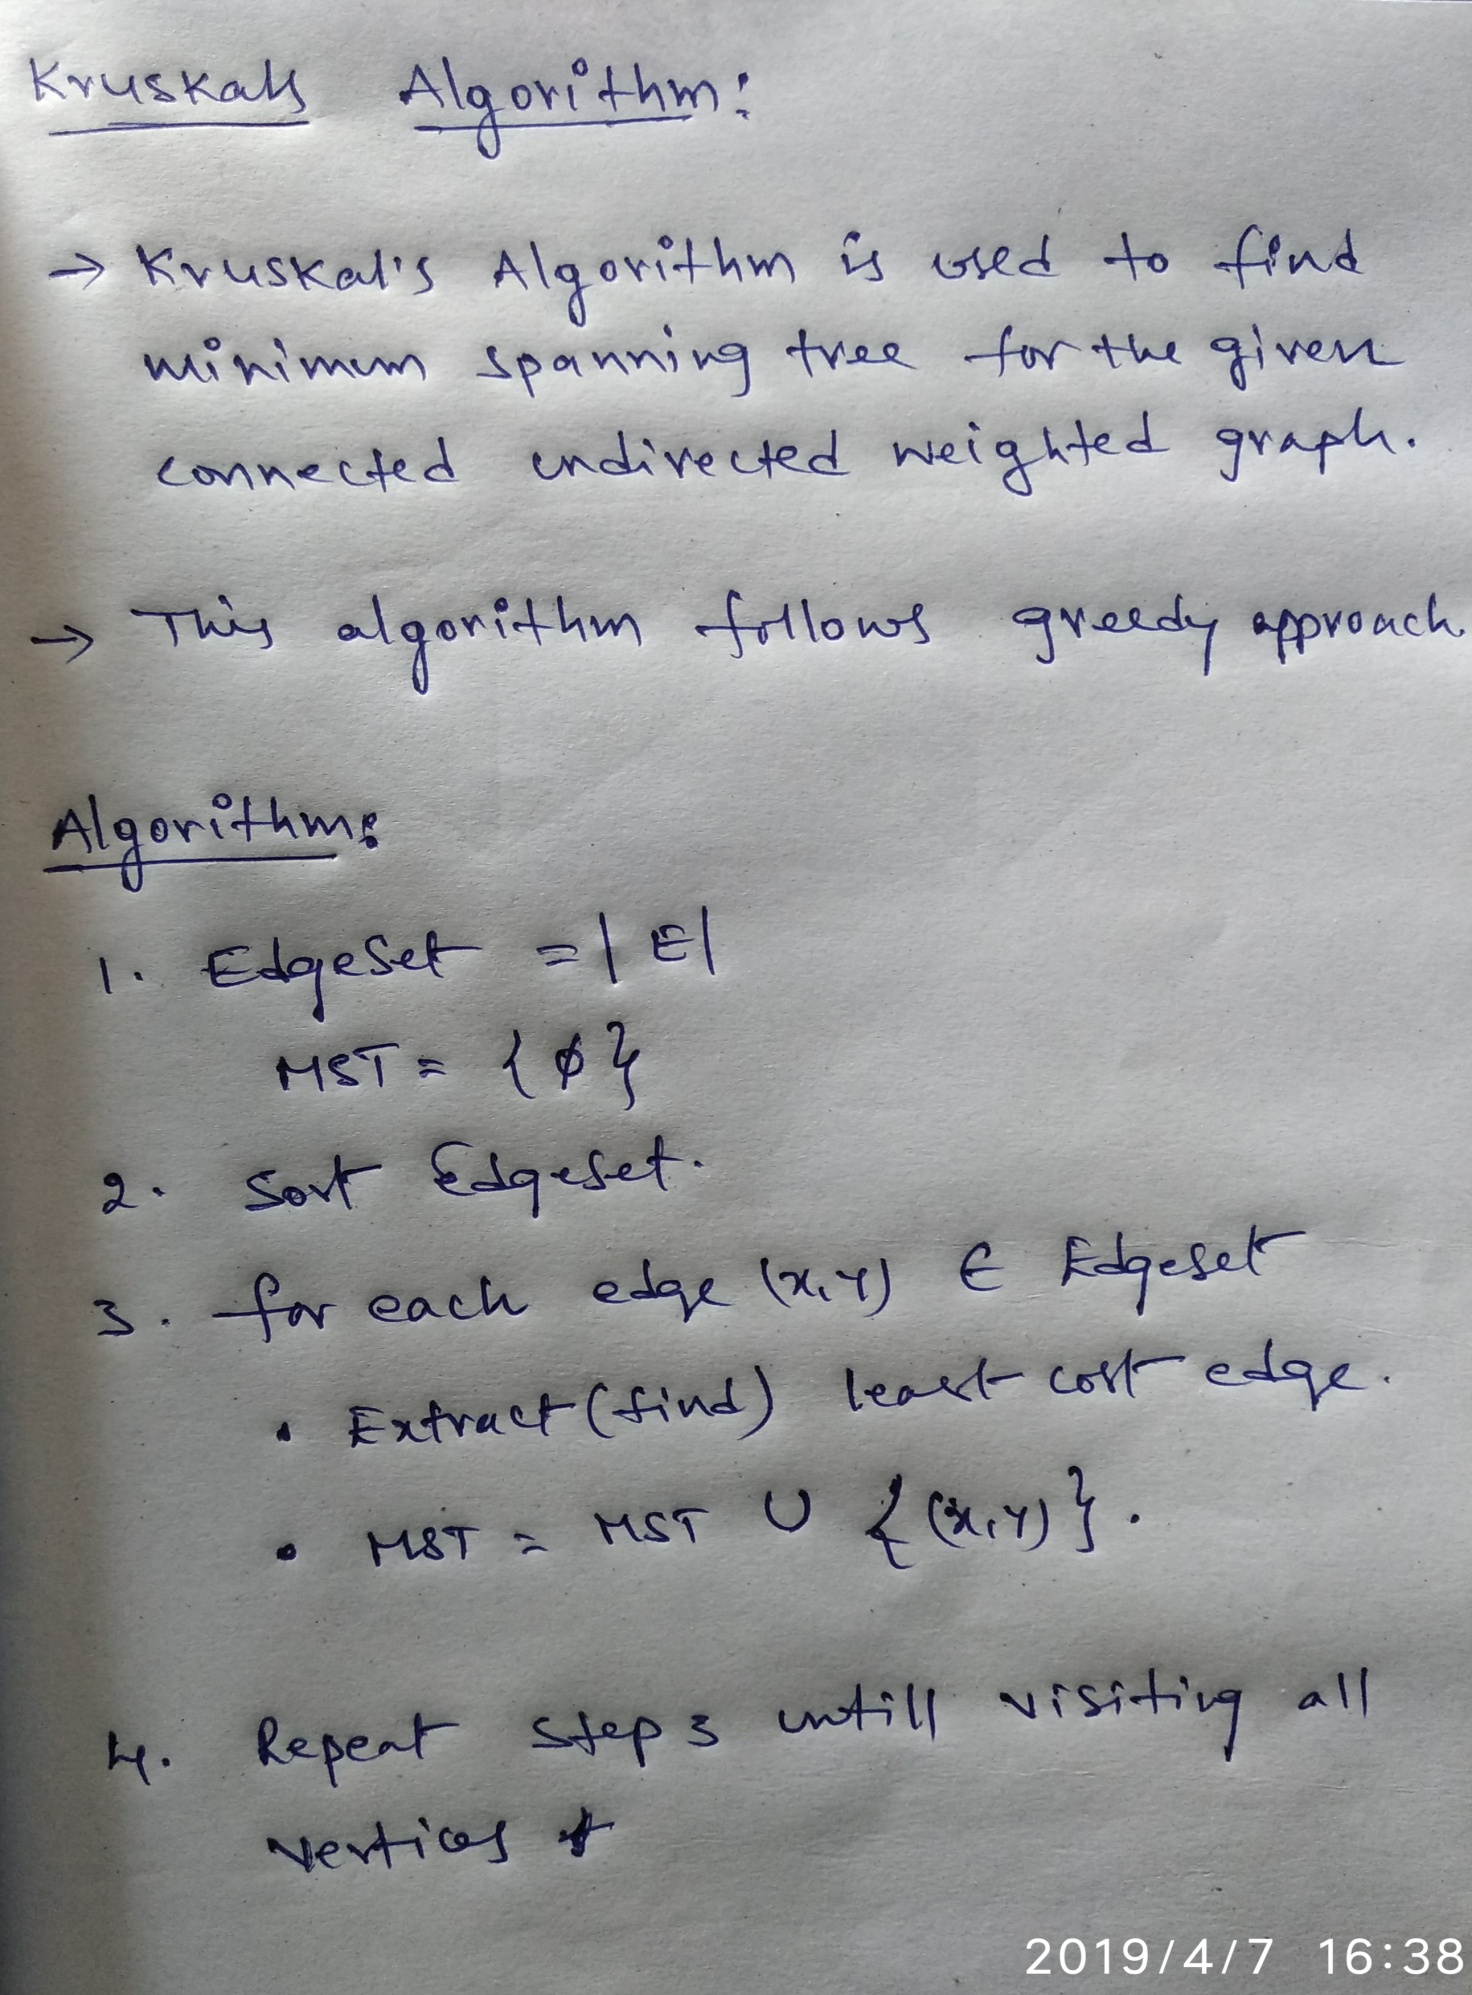 Kruskals Algorithm:
→ Kruskal's Algorithm is used to find
minimum spanning tree for the given
connected undirected weighted graph.
→ This algorithm follows greedy approach.
Algorithm:
1. EdgeSet = |E|
MST = {ϕ}
2. Sort Edgeset.
3. for each edge (x,y) ∈ Edgeset
• Extract (find) least cost edge.
• MST = MST ∪ {(x,y)}.
4. Repeat step 3 untill visiting all
vertices
2019/4/7 16:38